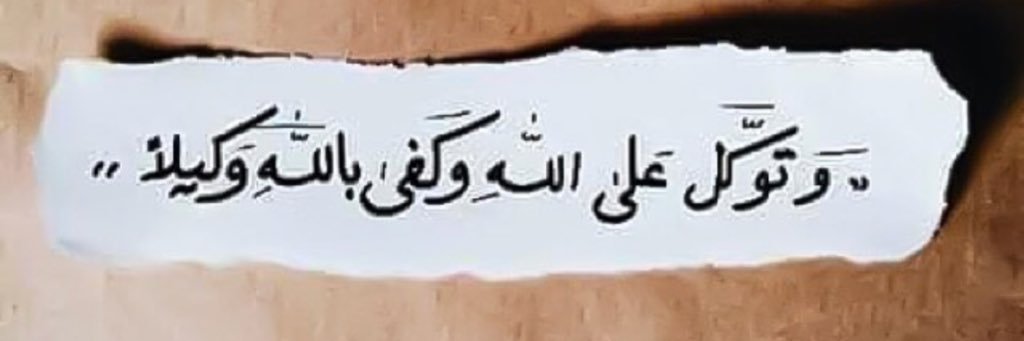 " وَ تَوَكَّل عَلىٰ اللّٰهِ وَكَفىٰ بِاللّٰهِ وَكيلاً "